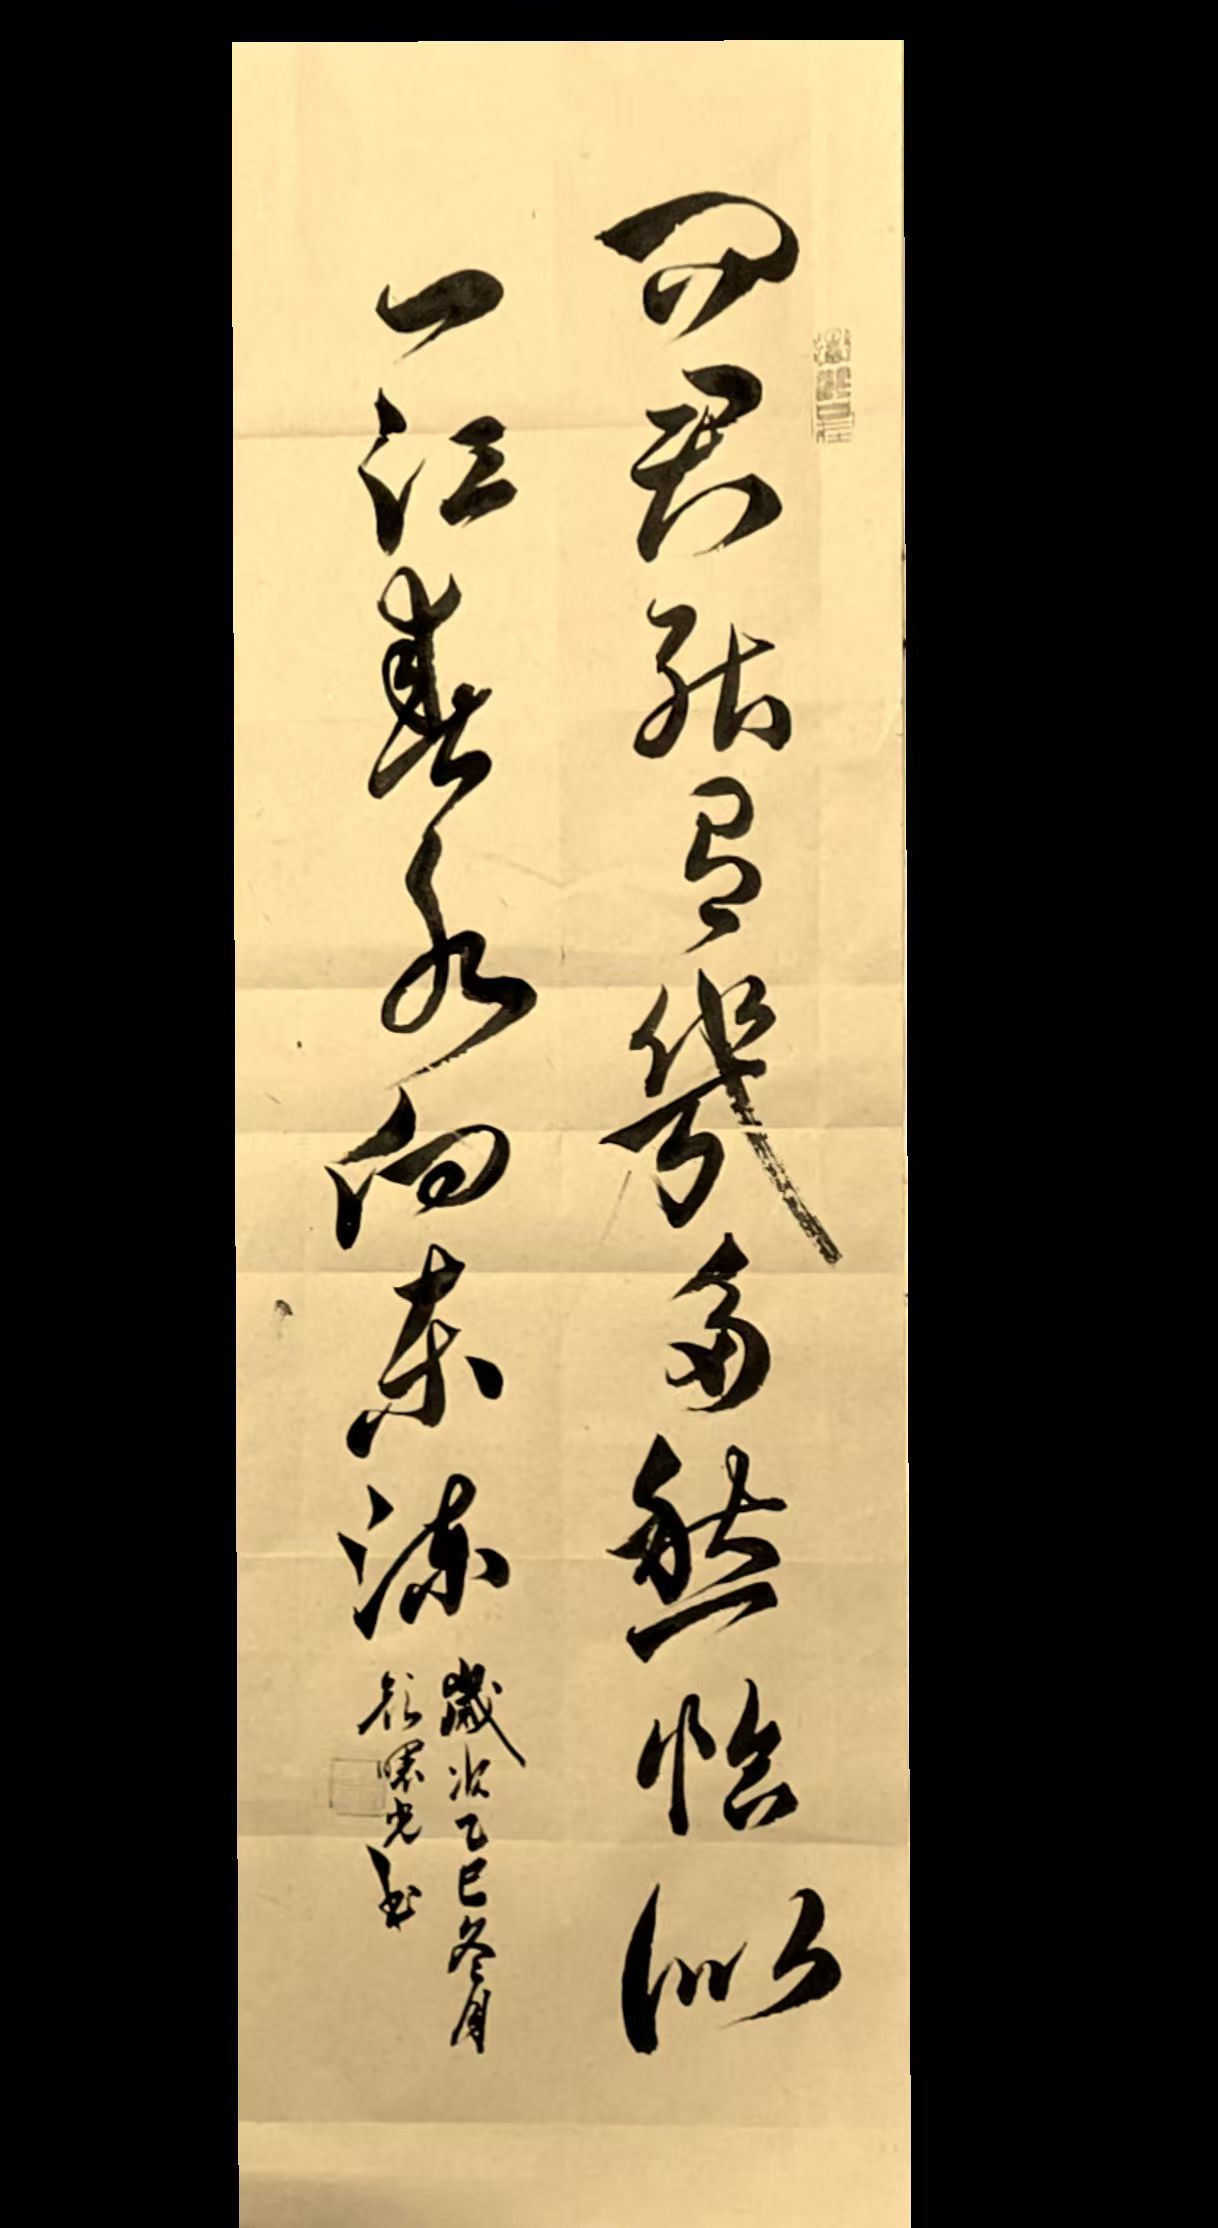 問君能有幾多愁恰似
一江春水向東流
歲次乙巳冬月
顏曙光書